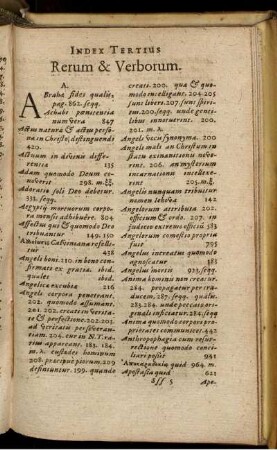 INDEX TERTIUS
Rerum & Verborum.
A.
ABrahæ fides qualis,
pag. 862. seqq.
Achabi pœnitentia
num vera 847
Actus naturæ & actus personæ
in Christo, distinguendi
420.
Actuum in divinis differentia
155
Adam quomodo Deum cognoverit
298.
Adoratio soli Deo debetur
333. seqq.
Ægyptij mortuorum corpora
mensis adhibuêre. 804
Affectus qui & quomodo Deo
tribuantur 149. 150
Calvinianâ refellitur
458
Angeli boni. 210. in bono confirmati
ex gratia. ibid.
quales ibid.
Angelicæ excubiæ 216
Angelo corpora penetrant.
202. quomodo assumant.
201. 202. creati in Veritate
& perfectione. 202. 203.
ad Veritatis perseverantiam.
204. cur in N.T. rarius
appareant. 183. 184.
m. a. custodes hominum
208. præcipuè piorum. 209
desiniuntur. 199. quando
creati. 200. quæ & quomodo
intelligant. 204. 205
sunt leves. 207. sunt spiritus.
200. seqq. unde gentilibus
innotuerint. 200.
201. m. a.
Angeli vocis synonyma. 200
Angeli mali an Christum in
statu exinanitionis noverint.
206. an mysterium
incarnationis intellexerint
205.
Angelis nunquam tribuitur
nomen Iehova 142
Angelorum attributa 201.
officium & ordo. 207. in
judicio extremo officia 383
Angelorum comestio proprie
fuit 795
Angelus increatus quomodo
agnoscatur 183
Angelus incertis 913. seqq.
Anima hominis non creatur.
284. propagatur per traducem.
287. seqq. qualis.
289. unde peccato originali
inficiatur. 284. seqq
Anima quomodo corporis proprietates
communicet. 442
Anthropophagia cum resurrectione
quomodo concilari
possit 941
quid 964. m.
Apostasia quid 621
fff 5 Apo-